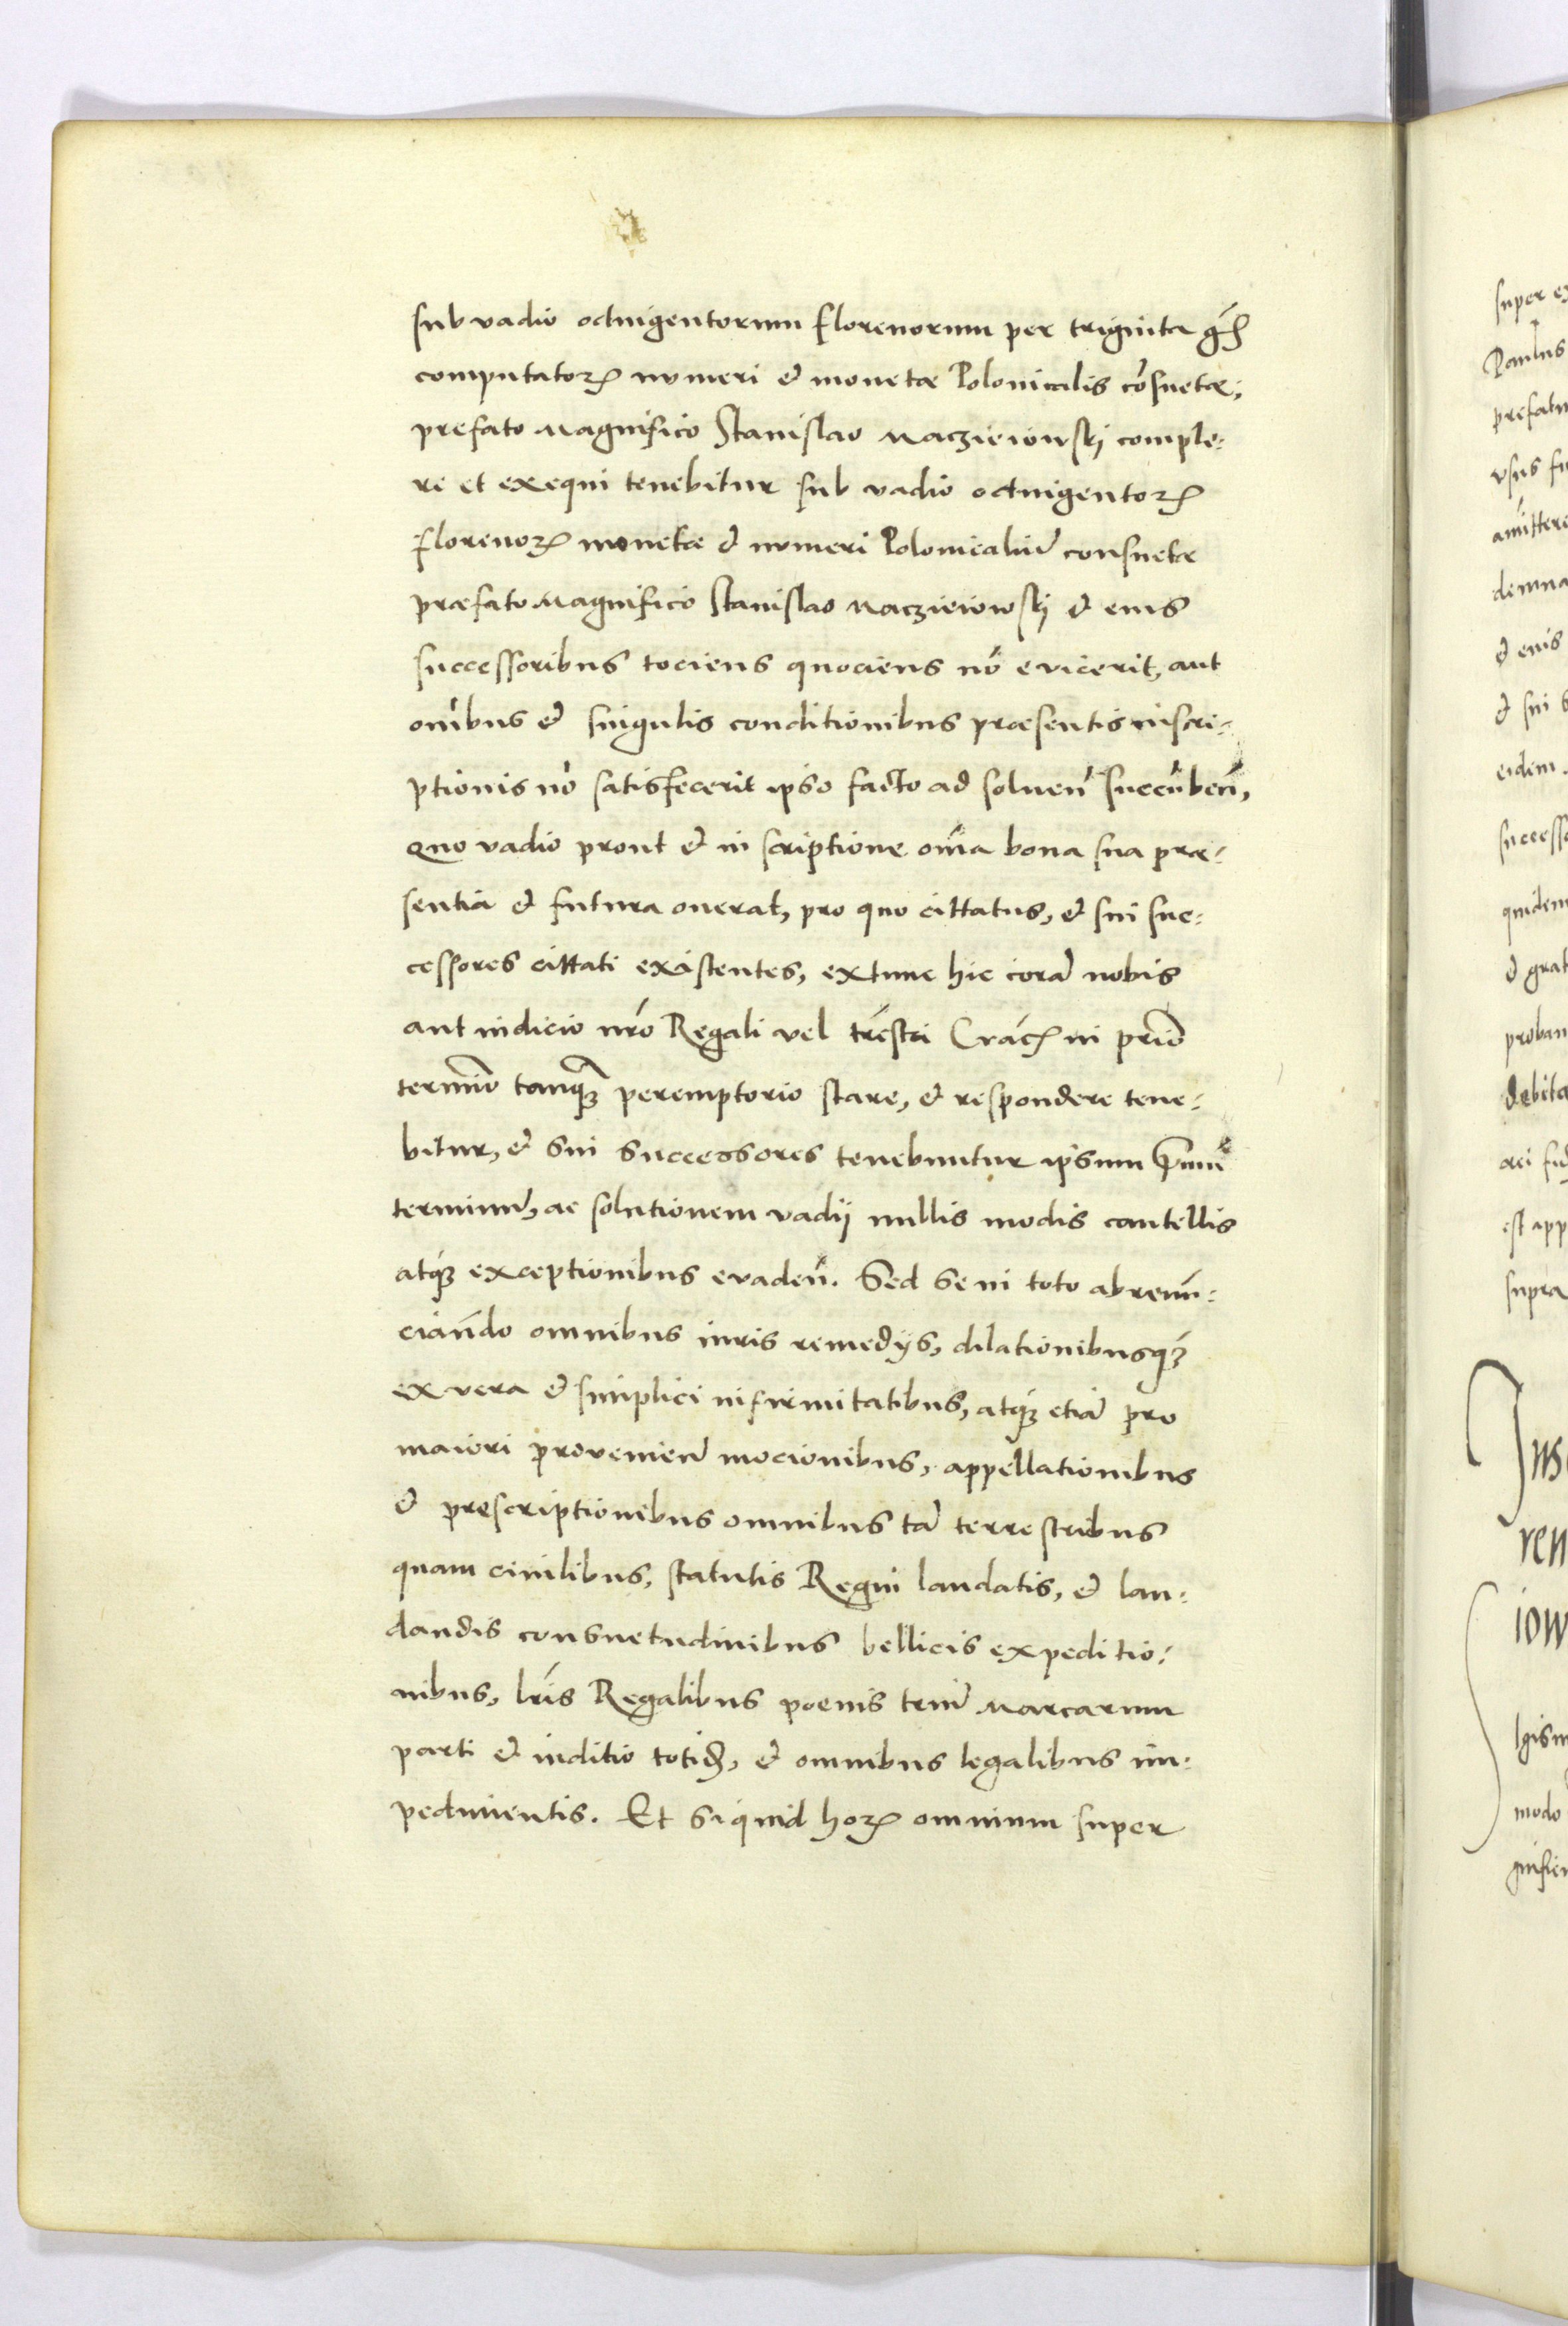 sub vadio octuigentorum florenorum per triginta gr̃
computatorꝝ numeri et monetæ Polonicalis cõsuetæ,
prefato Magnifico Stanislao Maczieiowskj comple-
re et exequi tenebitur sub vadio octuigentorꝝ
florenorꝝ monetæ et numeri Polonicaliũ consuetæ
præfato Magnifico Stanislao Maczieiowskj et eius
successoribus tociens quociens nõ evicerit, aut
oĩbus et singulis conditionibus præsentis inscri-
ptionis nõ satisfecerit ipso facto ad soluen̄ succũben̄,
quo vadio prout et inscriptione oĩa bona sua præ-
sentia et futura onerat, pro quo cittatus, et sui suc-
cessores cittati existentes, extunc hic corã nobis
aut iudicio nr̃o Regali vel tr̃estri Crac̃ in primo
termĩo tanqȝ peremptorio stare, et respondere tene-
bitur, et sui successores tenebuntur ipsum primũ
terminũ, ac solutionem vadij nullis modis cautellis
atqȝ exceptionibus evaden̄. Sed se in toto abrenũ-
ciando omnibus iuris remedijs, dilationibusqȝ
ex vera et simplici infirmitatibus, atqȝ etiã pro
maiori provenien̄ mocionibus, appellationibus
et prescriptionibus omnibus tã terrestribus
quam ciuilibus, statutis Regni laudatis, et lau-
dandis consuetudinibus bellicis expeditio-
nibus, lr̃is Regalibus poenis triũ Marcarum
parti et iuditio totiđ, et omnibus legalibus im-
pedimentis. Et siquid horꝝ omnium super
super
Paulus
prefatu
vsus
amittere
demna
et eius
et sui
eidem
successo
quidem
et grat
proban
debita
est app
supra
rem
iow
modo